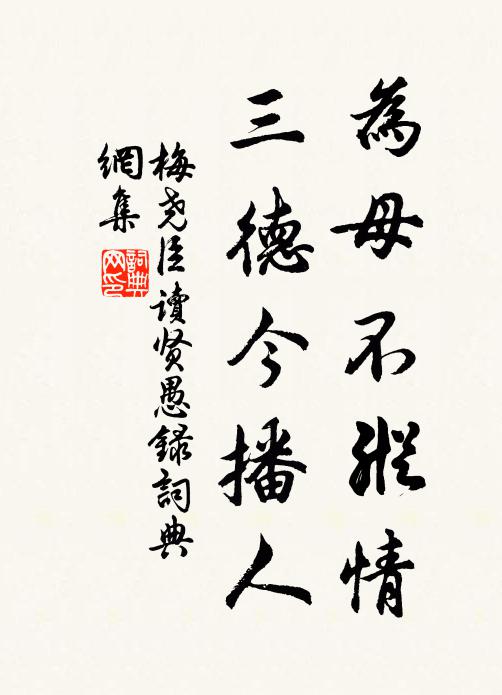 為母不縱情
三德今播人
梅尧臣讀贤愚錄詞典
網集
詞典
网印